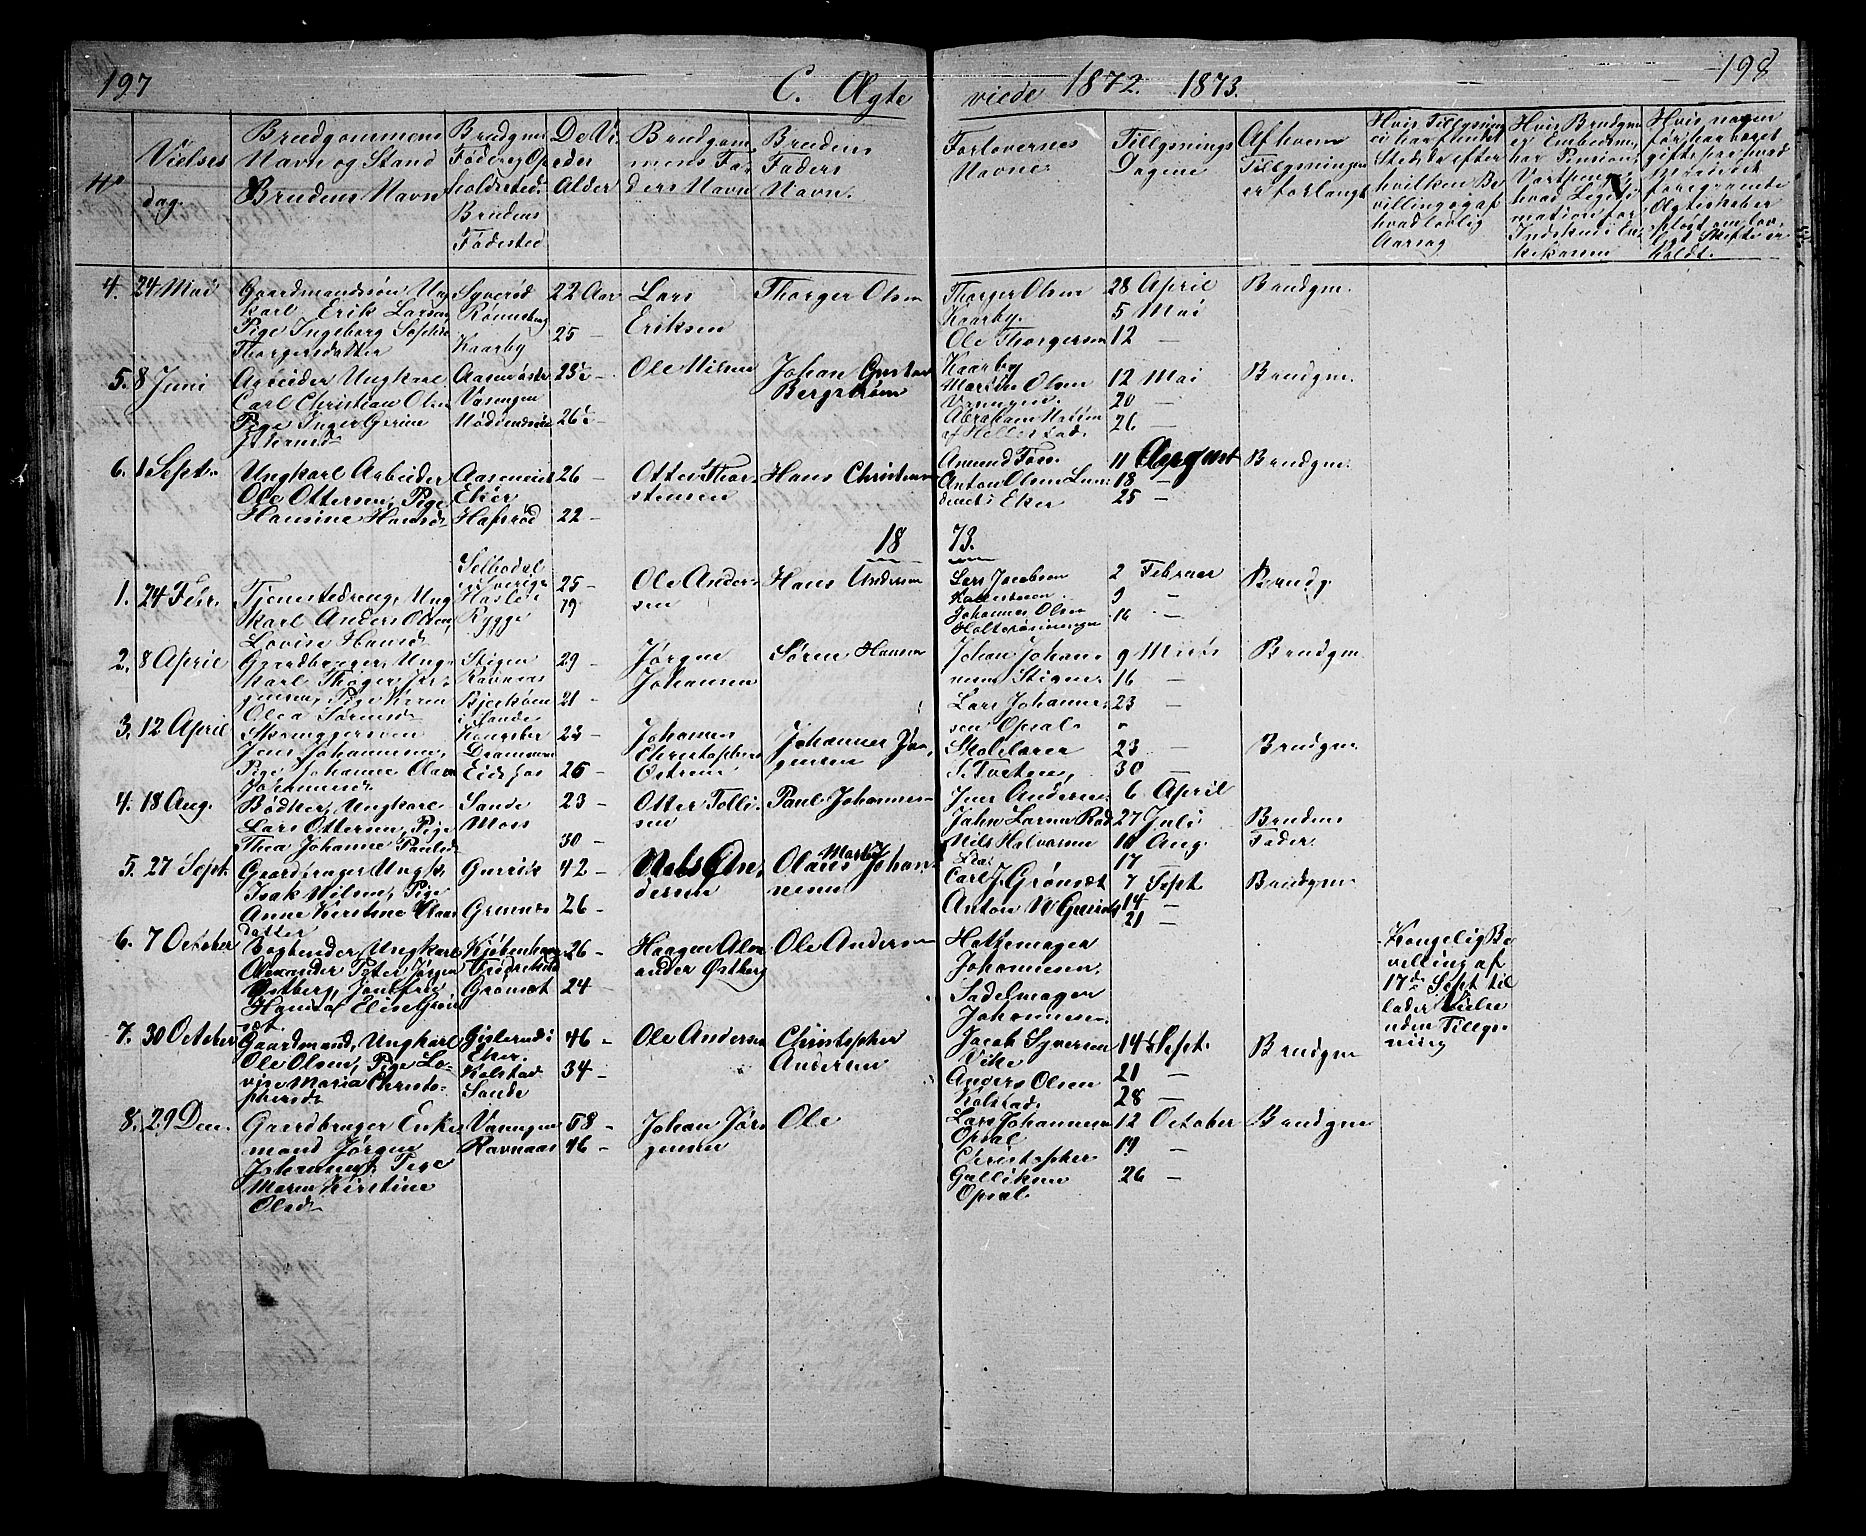 197
C. Ægte
viede 1872. 1873.
198
No
Vielses
dag.
Brudgommens
Navn og Stand
Brudens Navn
Brudgms
Føde og Op
holdsted.
Brudens
Fødested
De Vi
edes
Alder
Brudgom
mens Fa
ders Navn
Brudens
Faders
Navn.
Forlovernes
Navne
Tillysnings
Dagene
Af hvem
Tillysningen
er forlangt
Hvis Tillysning
ei har fundet
Sted da efter
hvilken Be
villing og af
hvad lovlig
Aarsag
Hvis Brudgm
er Enbedsm.
har Pension,
hvad Legiti
mation for
Indskud i En
kekassen
Hvis nogen
før har været
gift paa hvad
foregaaende
Ægteskaber
opløst om lov
ligt Skifte er
holdt.
4. 24 Mai
Gaardmandssøn Ung
karl Erik Larsen
Pige Ingeborg Sophie
Thorgersdatter
Syverød
Rønneberg
Kaarby
22 Aar
25 -
Lars
Eriksen
Thorger Olsen
Thorger Olsen
Kaarby.
Ole Thorgersen
Kaarby
28 April
5 Mai
12 -
Brudgm.
5. 8 Juni
Arbeider Ungkarl
Carl Christian Olsen
Pige Inger Gerine
Vanngen
23½ -
26½
Ole Nilsen
Johan Gustav
Bergstrøm
Martin Olsen
Vanngen.
Abraham
af Hellestad.
12 Mai
20 -
26 -
Brudgm.
6. 1 Sept.
Ungkarl Arbeider
Ole Ottersen, Pige
Hansine Hansd
Eker
Hafsrød
26 -
22 -
Otter Thor
stensen
Hans Christensen
Amund Foss.
Anton Olsen Lun
dere i Eker
11 August
18 -
25 -
Brudgm.
18 73.
1. 24 Febr.
Tjenestedreng, Ung
karl Anders Olsen,
Lovise Hansd
Selbodal
i Sverige
Rygge
25 -
19
Ole Ander
sen
Hans Andersen
Lars Jacobsen
Johannes Olsen
2 Februar
9 -
16 -
Brudg
2. 8 April
Gaardbruger, Ung
karl Thoger Jør
gensen, Pige Karen
Olea Sørensd
Stigen
Ravnaas
Bjerkøen
i Sande
29 -
21 -
Jørgen
Johansen
Søren Hansen
Johan Johan
nesen Stigen
Lars Johanne
sen Opsal
9 Marts
16 -
23 -
Brudgm.
3. 12 April
Jens Johannesen,
Pige Johanne Olava
Johannesd
Kongsber
Drammen
Eidsfos
23 -
25 -
Johannes
Christophers
Johannes Jør
gensen
Skolelærer
S. Tveten,
Jens Andersen
23 -
30 -
6 April
Brudgm
4. 18 Aug.
Bødker, Ungkarl
Lars Ottersen, Pige
Thea Johanne Paulsd
Sande
Moss
23 -
30 -
Otter Tolli
sen
Paul Johannes
John Larsen Rød
Nils Halvorsen
27 Juli
10 Aug.
17 -
Brudens
Fader.
5. 27 Sept.
Gaardbruger Ungk.
Isak Nilsen, Pige
Anne Kirstine Olaus
datter
42 -
26 -
Nils An
dersen
Olaus Martin Johan
nesen
Carl J. Grønsæt
Anton W
7 Sept.
14 -
21 -
Brudgm.
6. 7 October
Bogbinder, Ungkarl
Alexander Peter Jørgen
Østberg, Jomfru
Hanna Elise Grøn
sæt
Kjøbenhavn
Fredrikstad
Grønsæt
26 -
24 -
Haagen Alex
ander Østberg
Ole Andersen
Hattemager
Johannesen.
Sadelmager
Johannesen.
Kongelig Be
villing af
17de Sept til
lader Vielse
uden Tillys
ning
7. 30 October
Gaardmand, Ungkarl
Ole Olsen, Pige Lo
vise Maria Christo
phersd
Gislerud i
Eker.
Kolstad
Sande
46 -
34 -
Ole Andersen
Christopher
Andersen
Jacob Syversen
Vike
Anders Olsen
Kolstad.
14 Sept.
21 -
28 -
Brudgm
8. 29 Dec.
Gaardbruger Enke
mand Jørgen
Johannes Pige
Maren Kirstine
Olsd
Vanngen
Ravnaas
58 -
46 -
Johan Jør
gensen
Ole
Lars Johannesen
Opsal
Christopher
Gulliksen
Opsal
12 October
19 -
26 -
Brudgm